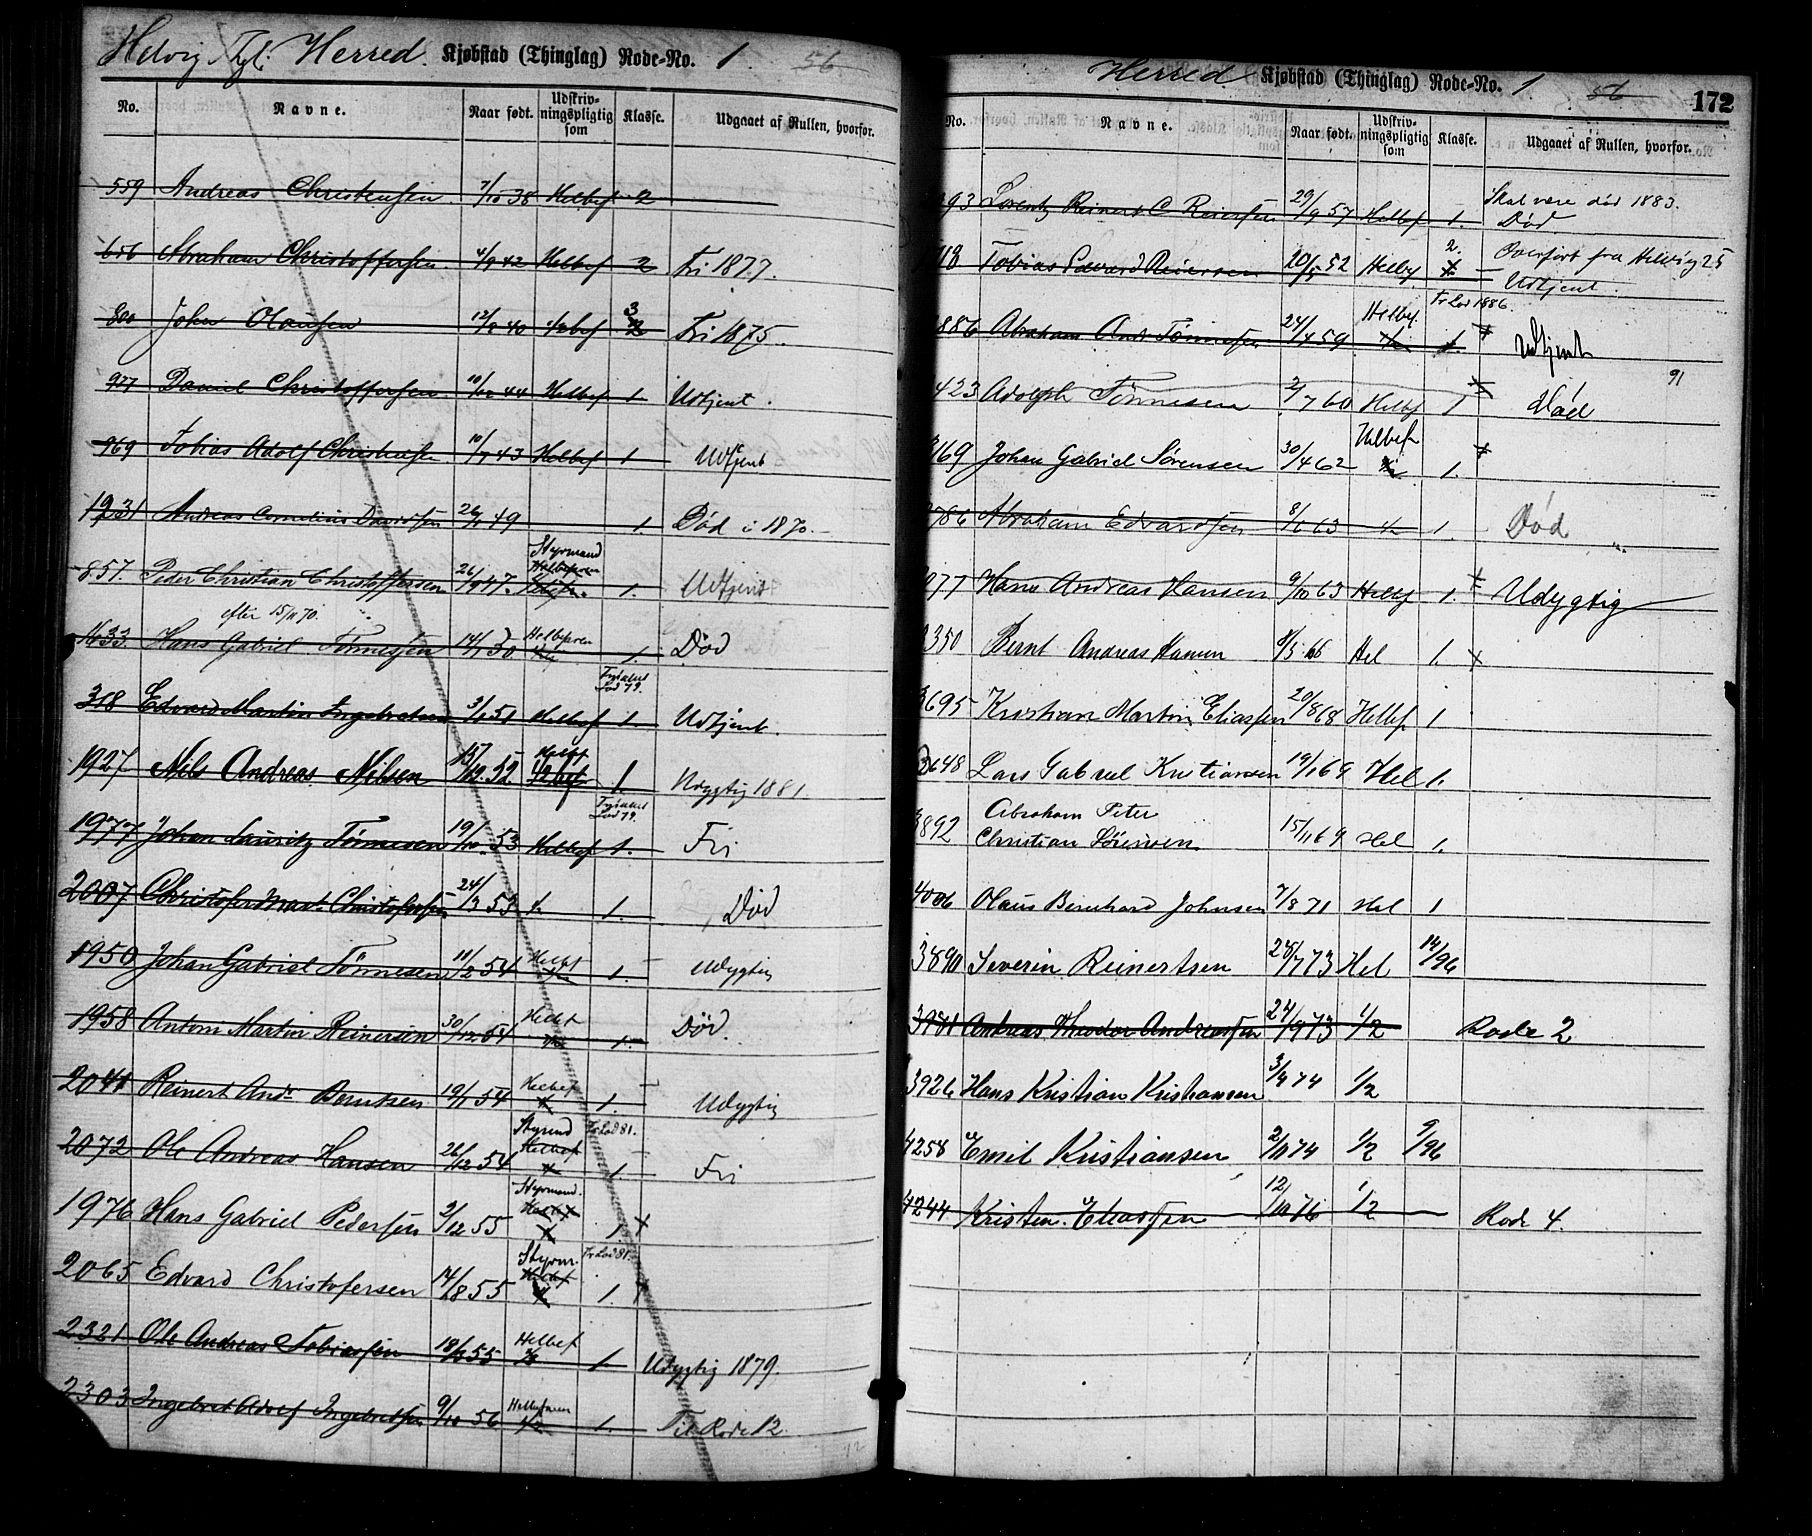 Helvig Tgl. Herred. Kjøbstad (Thinglag) Rode-No. 1 56
No. Navne. Naar født. Udskriv-ningspligtig som Klasse. Udgaaet af Rullen, hvorfor.
559 Andreas Christensen 7/10 38 Helbef 2
656 Abraham Christoffersen 4/9 42 Helbef 2 Fri 1877.
800 John Olausen 12/8 40 1/2 bef 3 Fri 1875.
927 Daniel Christoffersen 10/12 44 Helbef 1 Udtjent.
969 Tobias Adolf Christensen 10/7 43 Helbef 1 Udtjent
1931 Andreas Cornelius Davidsen 26/1 49 1. Død i 1870.
Styrmand
857. Peder Christian Christoffersen 26/9 47. Helbefaren 1. Udtjent
efter 15/11 70.
1633. Hans Gabriel Tønnesen 14/1 50 Helbefaren 1. Død
Frilod 79.
318 Edvard Martin Ingebretsen 3/1 51 Helbef 1 Udtjent.
1927 Nils Andreas Nilsen 15/12 52 Helbf 1/2 bef 1. Udygtig 1881.
Frilod 79.
1977 Johan Lauritz Tønnesen 19/10 53 Helbef 1. Fri
2007 Christofer Mart. Christofersen 24/3 53 1/2 1. Død
1950 Johan Gabriel Tønnesen 11/2 54 Helbf 1. Udygtig
1958 Antoni Martin Reinersen 30/12 54 Helbf 1. Død.
2041 Reinert Andr. Berntsen 19/1 54 Helbef 1. Udygtig
Styrmd Fr Lod 81.
2072 Ole Andreas Hansen 26/12 54 Helbef 1. Fri
Styrmand.
1976 Hans Gabriel Pedersen 2/12 55 Helbf 1
Styrm. Fr Lod 81.
2065 Edvard Christofersen 14/8 55 Helbef 1.
2321 Ole Andreas Tobiassen 18/10 55 Helbef 1/2 1. Udygtig 1879.
2303 Ingebret Adolf Ingebretsen 9/10 56 Helbefaren 1/2 1. Til Rode 12.
12
Herred Kjøbstad (Thinglag) Rode-No. 1 56 172
No. Navne. Naar født. Udskriv-ningspligtig som Klasse. Udgaaet af Rullen, hvorfor.
93 Lorentz Reinert C. Reiersen 29/9 57 Helbef 1. Skal være død 1883.
Død
118 Tobias Edvard Reiersen 20/5 52 Helbf 2 Overført fra Helvig 25
Udtjent.
Fr Lod 1886.
886 Abraham And. Tønnesen 24/4 59 Helbef. 1. Udtjent
91
423 Adolph Tønnesen 2/7 60 Helbf 1 Død
469 Johan Gabriel Sørensen 30/4 62 Helbef 1.
786 Abraham Edvardsen 8/1 63 1/2 1. Død
077 Hans Andreas Hansen 9/10 63 Helbf 1. Udygtig
350 Bernt Andreas Hansen 8/5 66 Hel 1.
3695 Kristian Martin Eliassen 20/8 68 Helbf 1
3648 Lars Gabriel Kristiansen 19/1 69 Hel 1.
Abraham Peter
3892 Christian Sørensen 15/11 69 Hel 1.
4006 Olaus Bernhard Johnsen 7/8 71 Hel 1
3890 Severin Reinertsen 28/7 73 Hel 14/96
3981 Andreas Theodor Andreassen 24/9 73 1/2 Rode 2
3926 Hans Kristian Kristiansen 3/4 74 1/2
4258 Emil Kristiansen 2/11 74 1/2 9/96
4244 Kristen Eliassen 12/10 76 1/2 Rode 4.